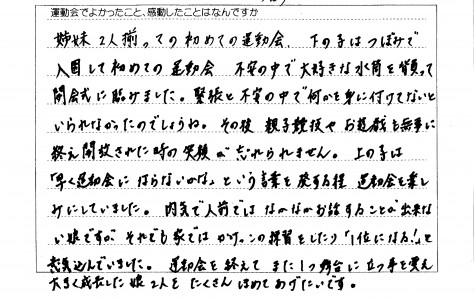 運動会でよかったこと、感動したことはなんですか
姉妹2人揃っての初めての運動会、下の子はつぼみで
入園して初めての運動会 不安の中で大好きな水筒を背負って
開会式に臨みました。緊張と不安の中で何かを身に付けてないと
いられなかったのでしょうね。その後 親子競技やお遊戯も無事に
終え開放された時の笑顔が忘れられません。上の子は
「早く運動会にならないかな」という言葉を発する程 運動会を楽し
みにしていました。内気で人前では なかなかお話することが出来な
い娘ですが それでも家では かけっこの練習をしたり「1位になる!」と
意気込んでいました。 運動会を終えて また1つ舞台に立つ事を覚え
大きく成長した娘2人を たくさんほめてあげたいです。